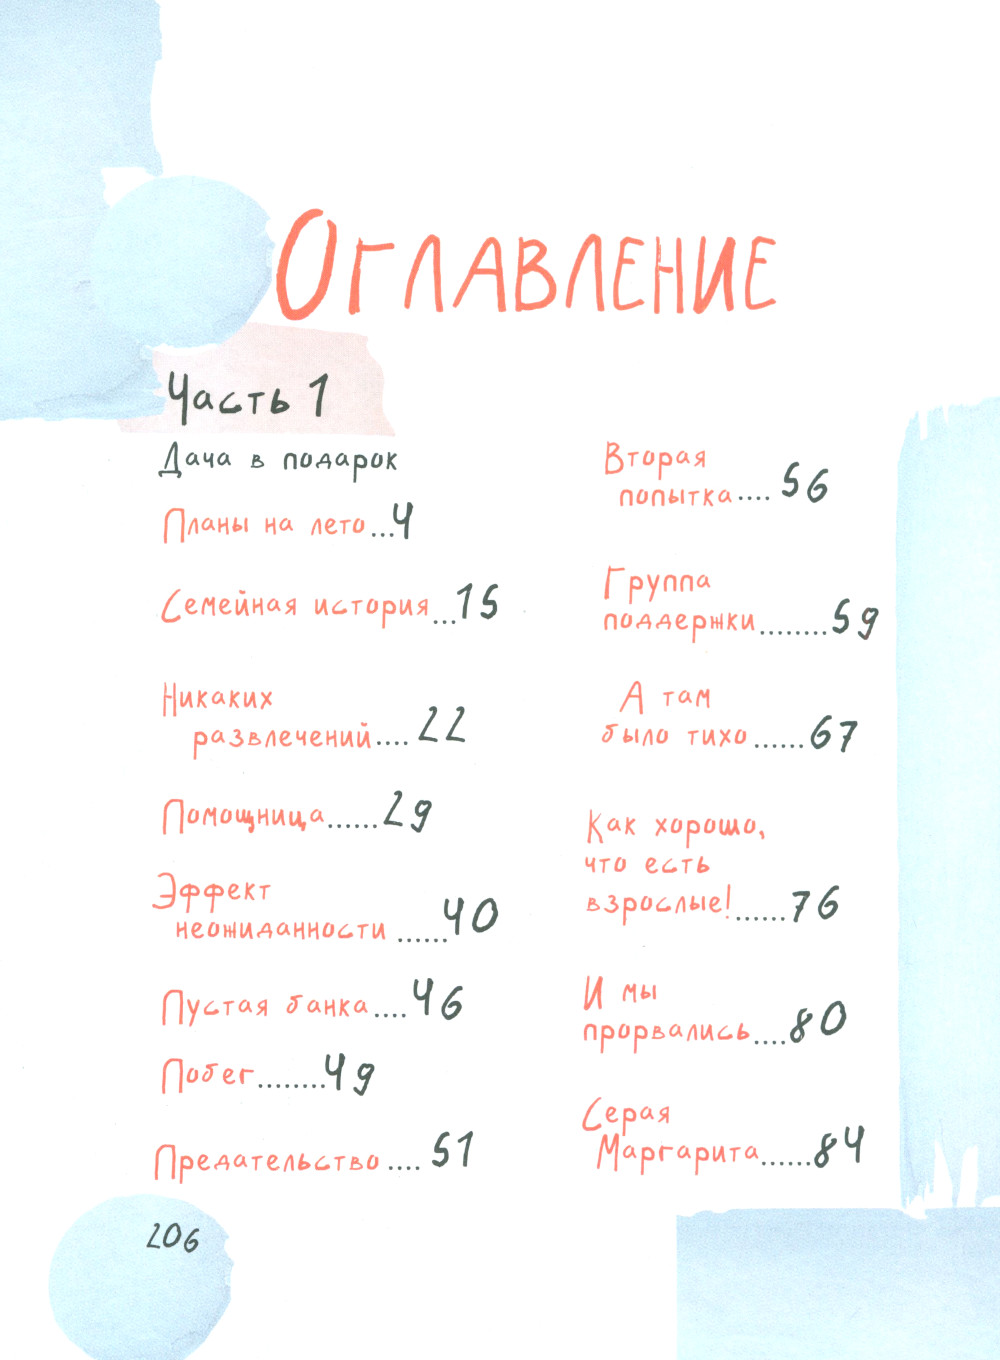 Оглавление
Часть 1
Дача в подарок
Планы на лето...4
Семейная история...15
Никаких
развлечений....22
Помощница......29
Эффект
неожиданности ......40
Пустая банка....46
Побег........49
Предательство.... 51
Вторая
попытка.... 56
Группа
поддержки........59
А там
было тихо......67
Как хорошо,
что есть
взрослые!......76
И мы
прорвались....80
Серая
Маргарита......84
206